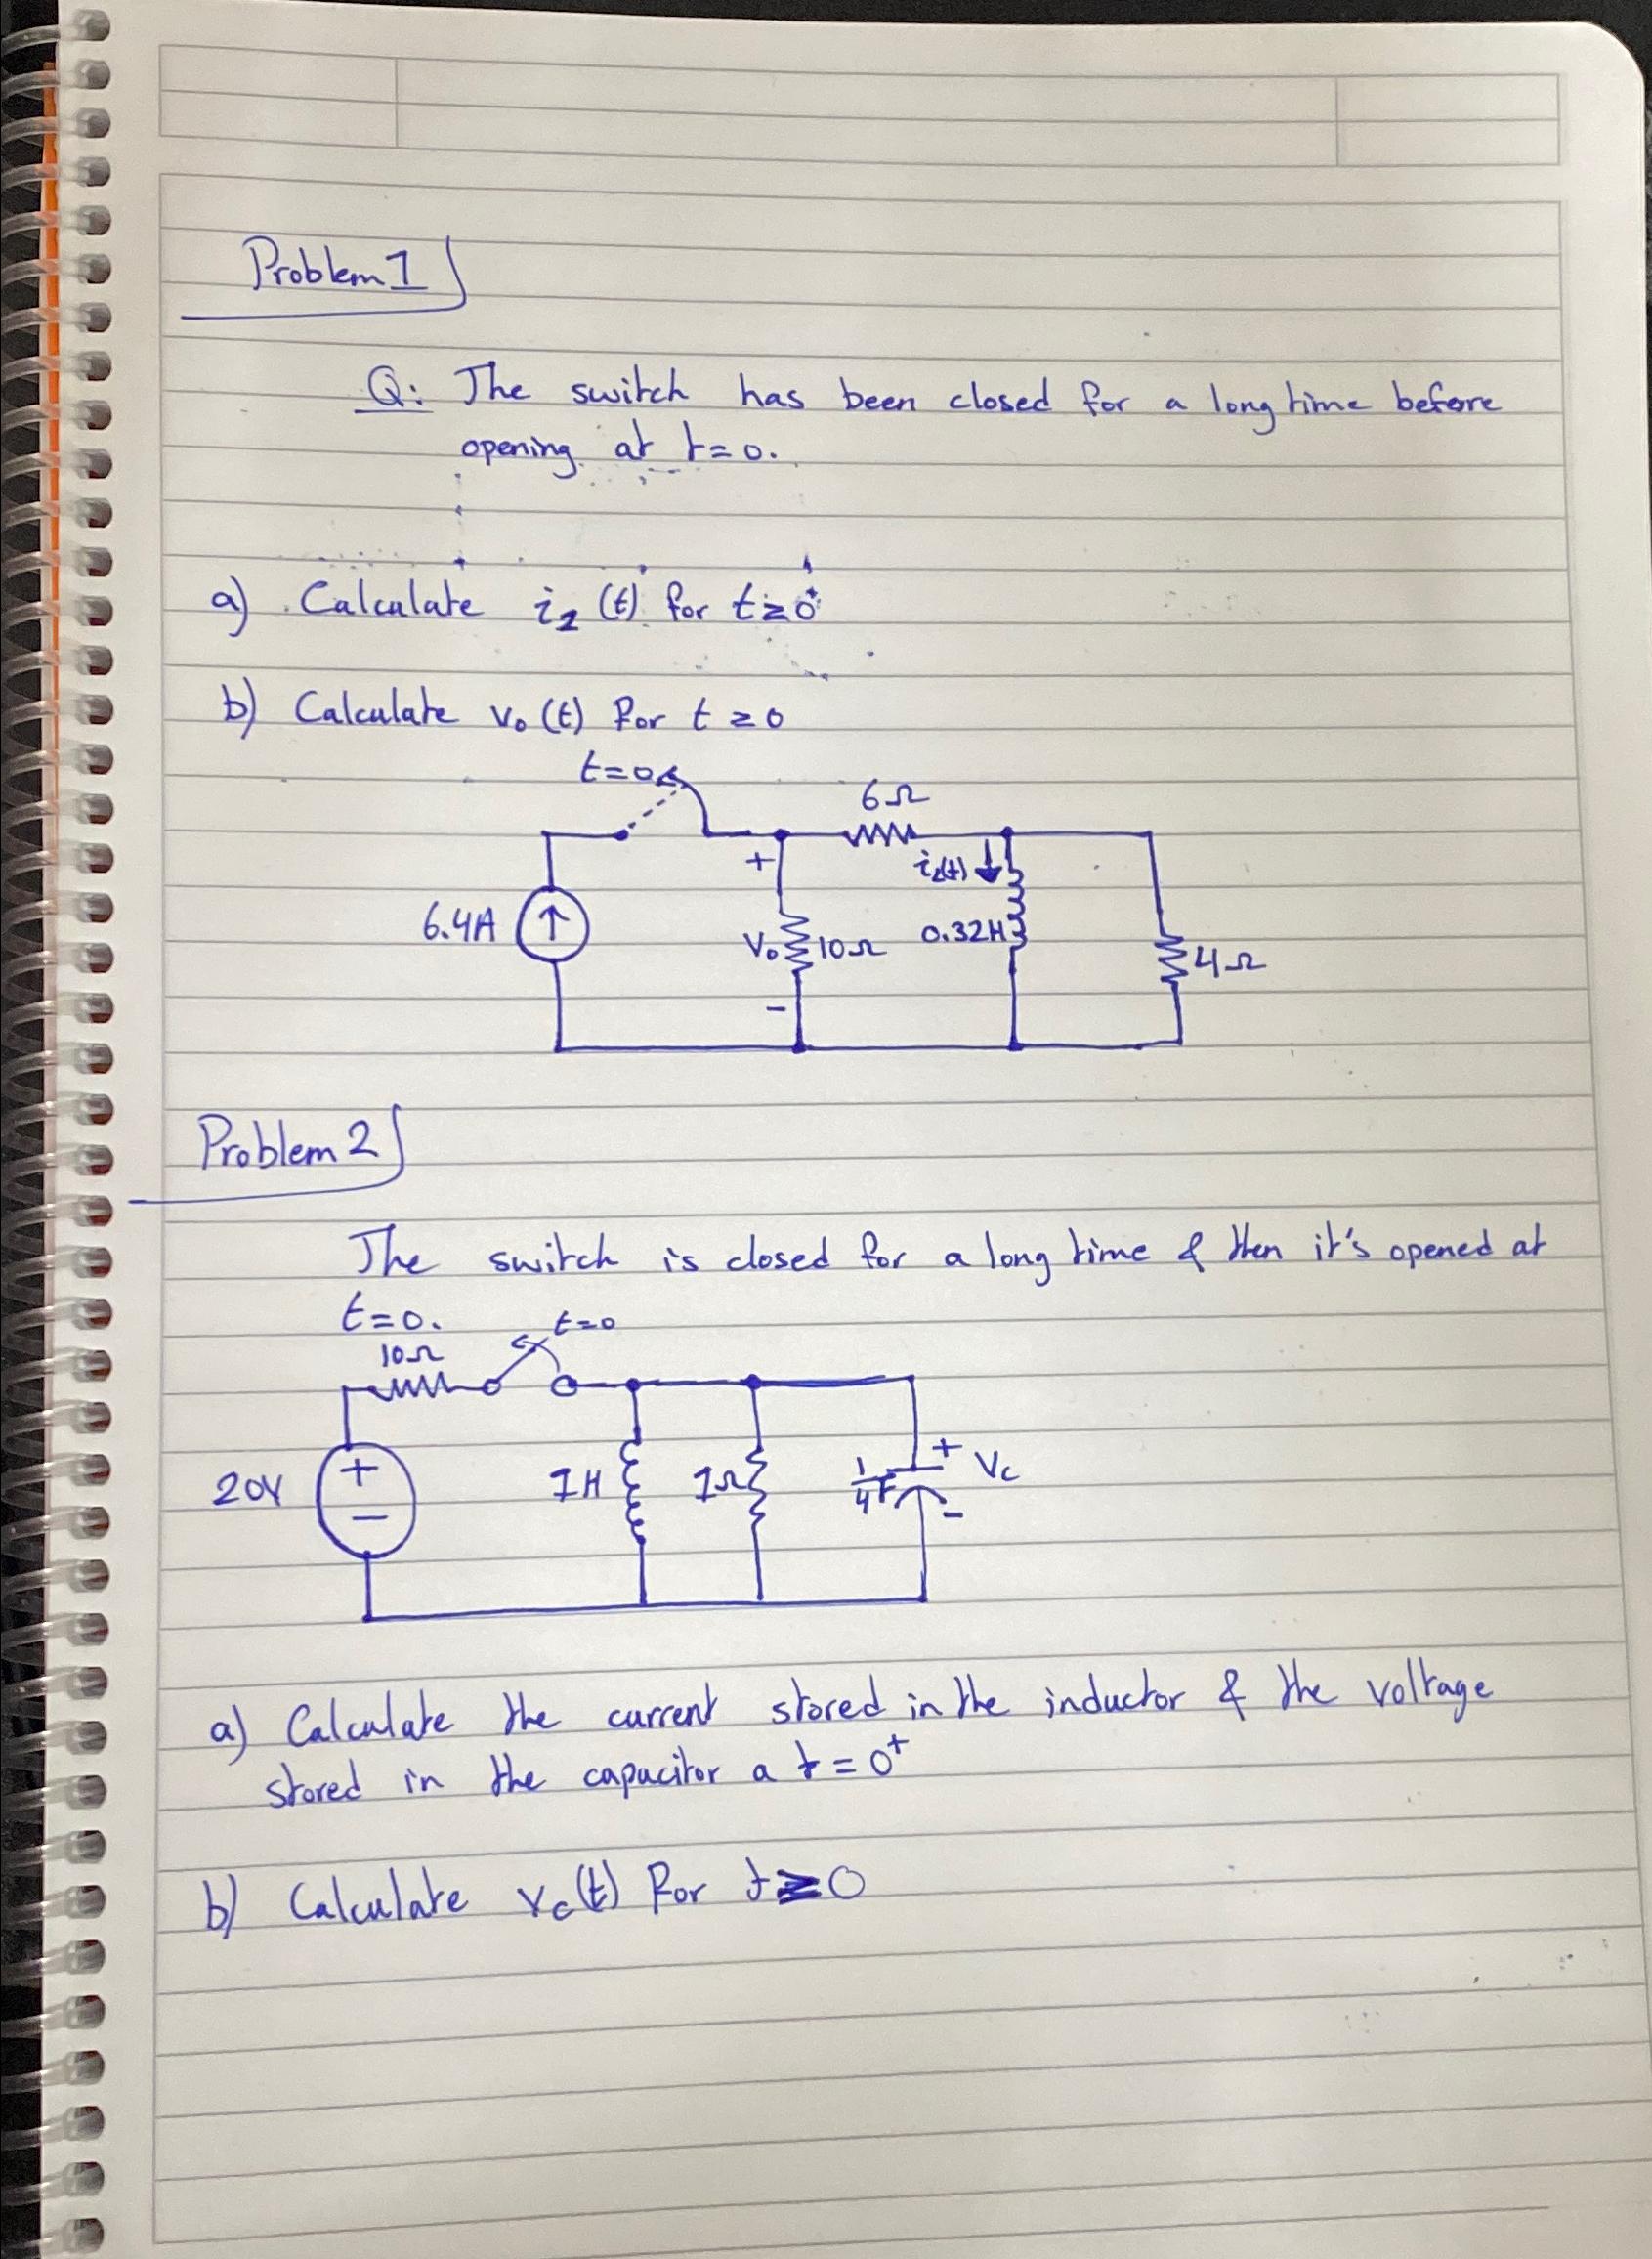 Problem 1
Q: The switch has been closed for a long time before
opening at t=0.
a) Calculate i₂(t) for t≥0⁺
b) Calculate v₀(t) for t≥0
t=0
6Ω
+
i₂(t)
6.4A
V₀
10Ω
0.32H
4Ω
-
Problem 2
The switch is closed for a long time & then it's opened at
t=0.
t=0
10Ω
20V
+
-
1H
1Ω
1/4F
+
Vc
-
a) Calculate the current stored in the inductor & the voltage
stored in the capacitor a t=0⁺
b) Calculate vc(t) for t≥0